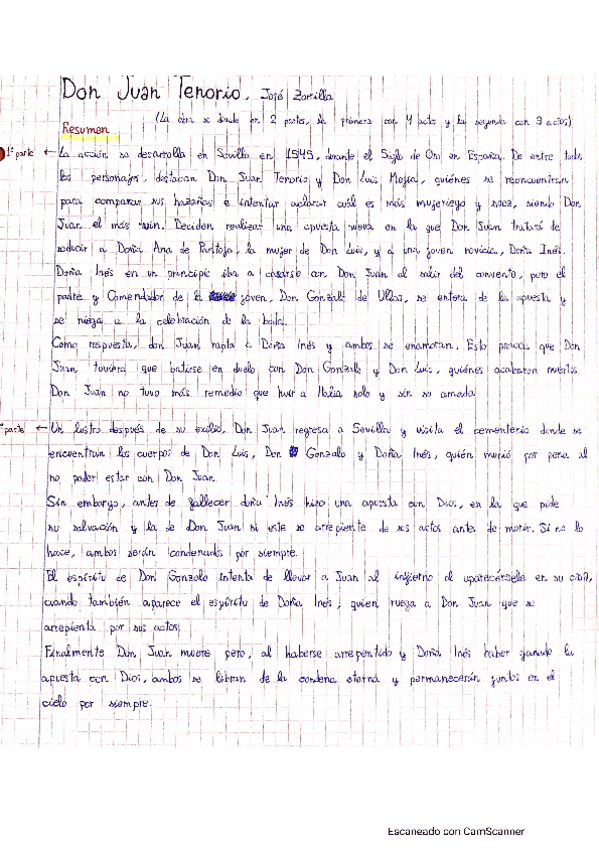 Don Juan Tenorio, José Zorrilla
(La obra se divide en 2 partes, la primera con 4 actos y la segunda con 3 actos)
Resumen
1ª parte ← La acción se desarrolla en Sevilla en 1545, durante el Siglo de Oro en España. De entre todos
los personajes, destacan Don Juan Tenorio y Don Luis Mejía, quiénes se reencuentran
para comparar sus hazañas e intentar aclarar cuál es más mujeriego y soez, siendo Don
Juan el más ruin. Deciden realizar una apuesta nueva en la que Don Juan tratará de
seducir a Doña Ana de Pantoja, la mujer de Don Luis, y a una joven novicia, Doña Inés.
Doña Inés en un principio iba a casarse con Don Juan al salir del convento, pero el
padre y Comendador de la joven, Don Gonzalo de Ulloa, se entera de la apuesta y
se niega a la celebración de la boda.
Como respuesta, don Juan rapta a Doña Inés y ambos se enamoran. Esto provoca que Don
Juan tuviera que batirse en duelo con Don Gonzalo y Don Luis, quiénes acabaron muertos
Don Juan no tuvo más remedio que huir a Italia solo y sin su amada
parte ← Un lustro después de su exilio, Don Juan regresa a Sevilla y visita el cementerio donde se
encuentran los cuerpos de Don Luis, Don Gonzalo y Doña Inés, quién murió por pena al
no poder estar con Don Juan
Sin embargo, antes de fallecer doña Inés hizo una apuesta con Dios, en la que pide
su salvación y la de Don Juan si este se arrepiente de sus actos antes de morir. Si no lo
hace, ambos serán condenados por siempre.
El espíritu de Don Gonzalo intenta de llevar a Juan al infierno al aparecérsele en su casa,
cuando también aparece el espíritu de Doña Inés, quien ruega a Don Juan que se
arrepienta por sus actos
Finalmente Don Juan muere pero, al haberse arrepentido y Doña Inés haber ganado la
apuesta con Dios, ambos se libran de la condena eterna y permanecerán juntos en el
cielo por siempre.
Escaneado con CamScanner